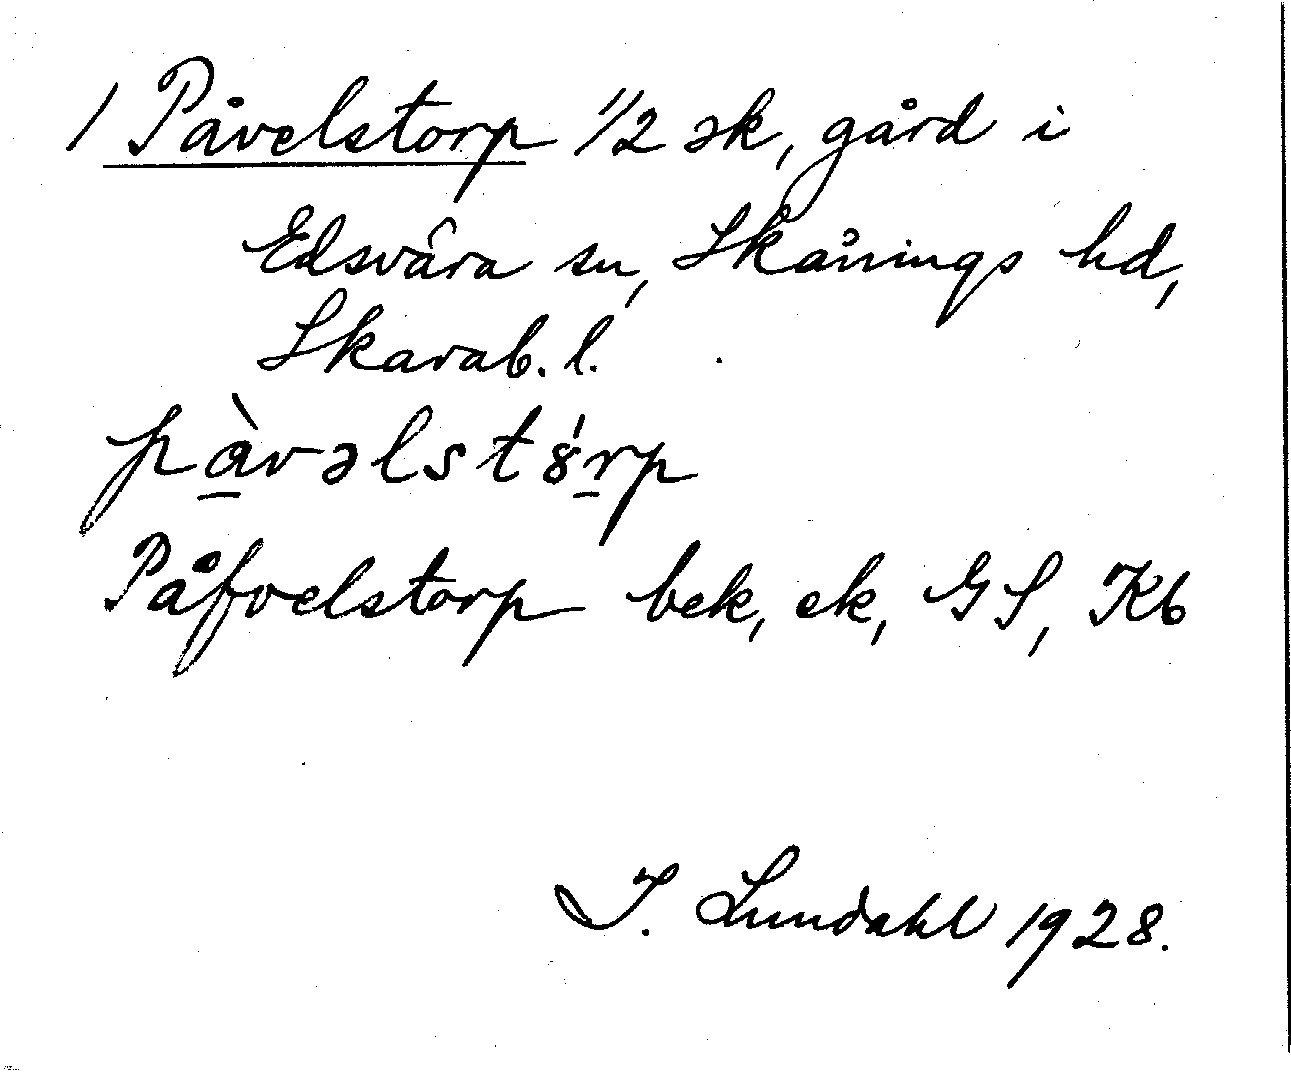 1 Påvelstorp 1/2 sk, gård i
Edsvära sn, Skånings hd,
Skarab. l.
pàvəlstórp
Påfvelstorp bek, ek, GS, Kb
I. Lundahl 1928.